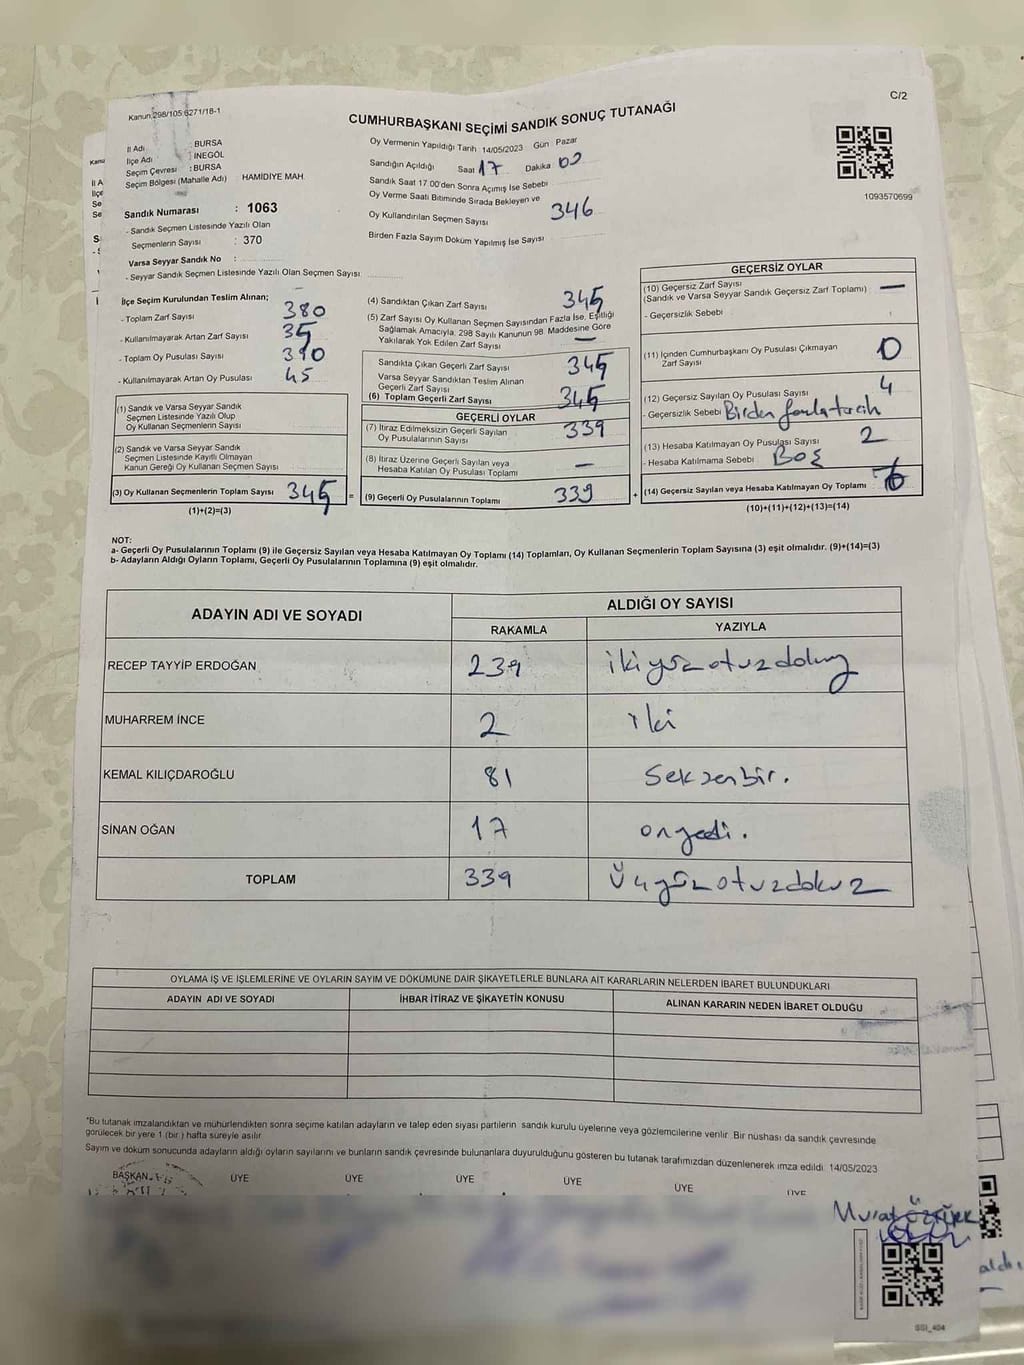 C/2
Kanun.298/105 6271/18-1
CUMHURBAŞKANI SEÇİMİ SANDIK SONUÇ TUTANAĞI
İl Adı : BURSA
İlçe Adı : İNEGÖL
Seçim Çevresi : BURSA
Seçim Bölgesi (Mahalle Adı) HAMİDİYE MAH.
Sandık Numarası : 1063
- Sandık Seçmen Listesinde Yazılı Olan
Seçmenlerin Sayısı : 370
Varsa Seyyar Sandık No :
- Seyyar Sandık Seçmen Listesinde Yazılı Olan Seçmen Sayısı
Oy Vermenin Yapıldığı Tarih 14/05/2023 Gün Pazar
Sandığın Açıldığı Saat 17 Dakika 00
Sandık Saat 17.00'den Sonra Açımış İse Sebebi
Oy Verme Saati Bitiminde Sırada Bekleyen ve
Oy Kullandırılan Seçmen Sayısı 346
Birden Fazla Sayım Döküm Yapılmış İse Sayısı
1093570699
İlçe Seçim Kurulundan Teslim Alınan;
- Toplam Zarf Sayısı 380
- Kullanılmayarak Artan Zarf Sayısı 35
- Toplam Oy Pusulası Sayısı 390
- Kullanılmayarak Artan Oy Pusulası 45
(1) Sandık ve Varsa Seyyar Sandık
Seçmen Listesinde Yazılı Olup
Oy Kullanan Seçmenlerin Sayısı
(2) Sandık ve Varsa Seyyar Sandık
Seçmen Listesinde Kayıtlı Olmayan
Kanun Gereği Oy Kullanan Seçmen Sayısı
(3) Oy Kullanan Seçmenlerin Toplam Sayısı 345
(1)+(2)=(3)
(4) Sandıktan Çıkan Zarf Sayısı 345
(5) Zarf Sayısı Oy Kullanan Seçmen Sayısından Fazla İse, Eşitliği
Sağlamak Amacıyla, 298 Sayılı Kanunun 98. Maddesine Göre
Yakılarak Yok Edilen Zarf Sayısı —
Sandıkta Çıkan Geçerli Zarf Sayısı 345
Varsa Seyyar Sandıktan Teslim Alınan
Geçerli Zarf Sayısı
(6) Toplam Geçerli Zarf Sayısı 345
GEÇERLİ OYLAR
(7) İtiraz Edilmeksizin Geçerli Sayılan
Oy Pusulalarının Sayısı 339
(8) İtiraz Üzerine Geçerli Sayılan veya
Hesaba Katılan Oy Pusulası Toplamı —
= (9) Geçerli Oy Pusulalarının Toplamı 339 +
GEÇERSİZ OYLAR
(10) Geçersiz Zarf Sayısı
(Sandık ve Varsa Seyyar Sandık Geçersiz Zarf Toplamı) —
- Geçersizlik Sebebi :
(11) İçinden Cumhurbaşkanı Oy Pusulası Çıkmayan
Zarf Sayısı 0
(12) Geçersiz Sayılan Oy Pusulası Sayısı 4
- Geçersizlik Sebebi Birden fazla tercih
(13) Hesaba Katılmayan Oy Pusulası Sayısı 2
- Hesaba Katılmama Sebebi Boş
(14) Geçersiz Sayılan veya Hesaba Katılmayan Oy Toplamı 6
(10)+(11)+(12)+(13)=(14)
NOT:
a- Geçerli Oy Pusulalarının Toplamı (9) ile Geçersiz Sayılan veya Hesaba Katılmayan Oy Toplamı (14) Toplamları, Oy Kullanan Seçmenlerin Toplam Sayısına (3) eşit olmalıdır. (9)+(14)=(3)
b- Adayların Aldığı Oyların Toplamı, Geçerli Oy Pusulalarının Toplamına (9) eşit olmalıdır.
ADAYIN ADI VE SOYADI ALDIĞI OY SAYISI
RAKAMLA YAZIYLA
RECEP TAYYİP ERDOĞAN 239 ikiyüzotuzdokuz
MUHARREM İNCE 2 iki
KEMAL KILIÇDAROĞLU 81 Seksenbir.
SİNAN OĞAN 17 onyedi.
TOPLAM 339 Üçyüzotuzdokuz
OYLAMA İŞ VE İŞLEMLERİNE VE OYLARIN SAYIM VE DÖKÜMÜNE DAİR ŞİKAYETLERLE BUNLARA AİT KARARLARIN NELERDEN İBARET BULUNDUKLARI
ADAYIN ADI VE SOYADI İHBAR İTİRAZ VE ŞİKAYETİN KONUSU ALINAN KARARIN NEDEN İBARET OLDUĞU
*Bu tutanak imzalandıktan ve mühürlendikten sonra seçime katılan adayların ve talep eden siyasi partilerin sandık kurulu üyelerine veya gözlemcilerine verilir. Bir nüshası da sandık çevresinde
görülecek bir yere 1 (bir) hafta süreyle asılır.
Sayım ve döküm sonucunda adayların aldığı oyların sayılarını ve bunların sandık çevresinde bulunanlara duyurulduğunu gösteren bu tutanak tarafımızdan düzenlenerek imza edildi. 14/05/2023
BAŞKAN ÜYE ÜYE ÜYE ÜYE ÜYE ÜYE
Murat ÖZTÜRK
aldı
SSI_404